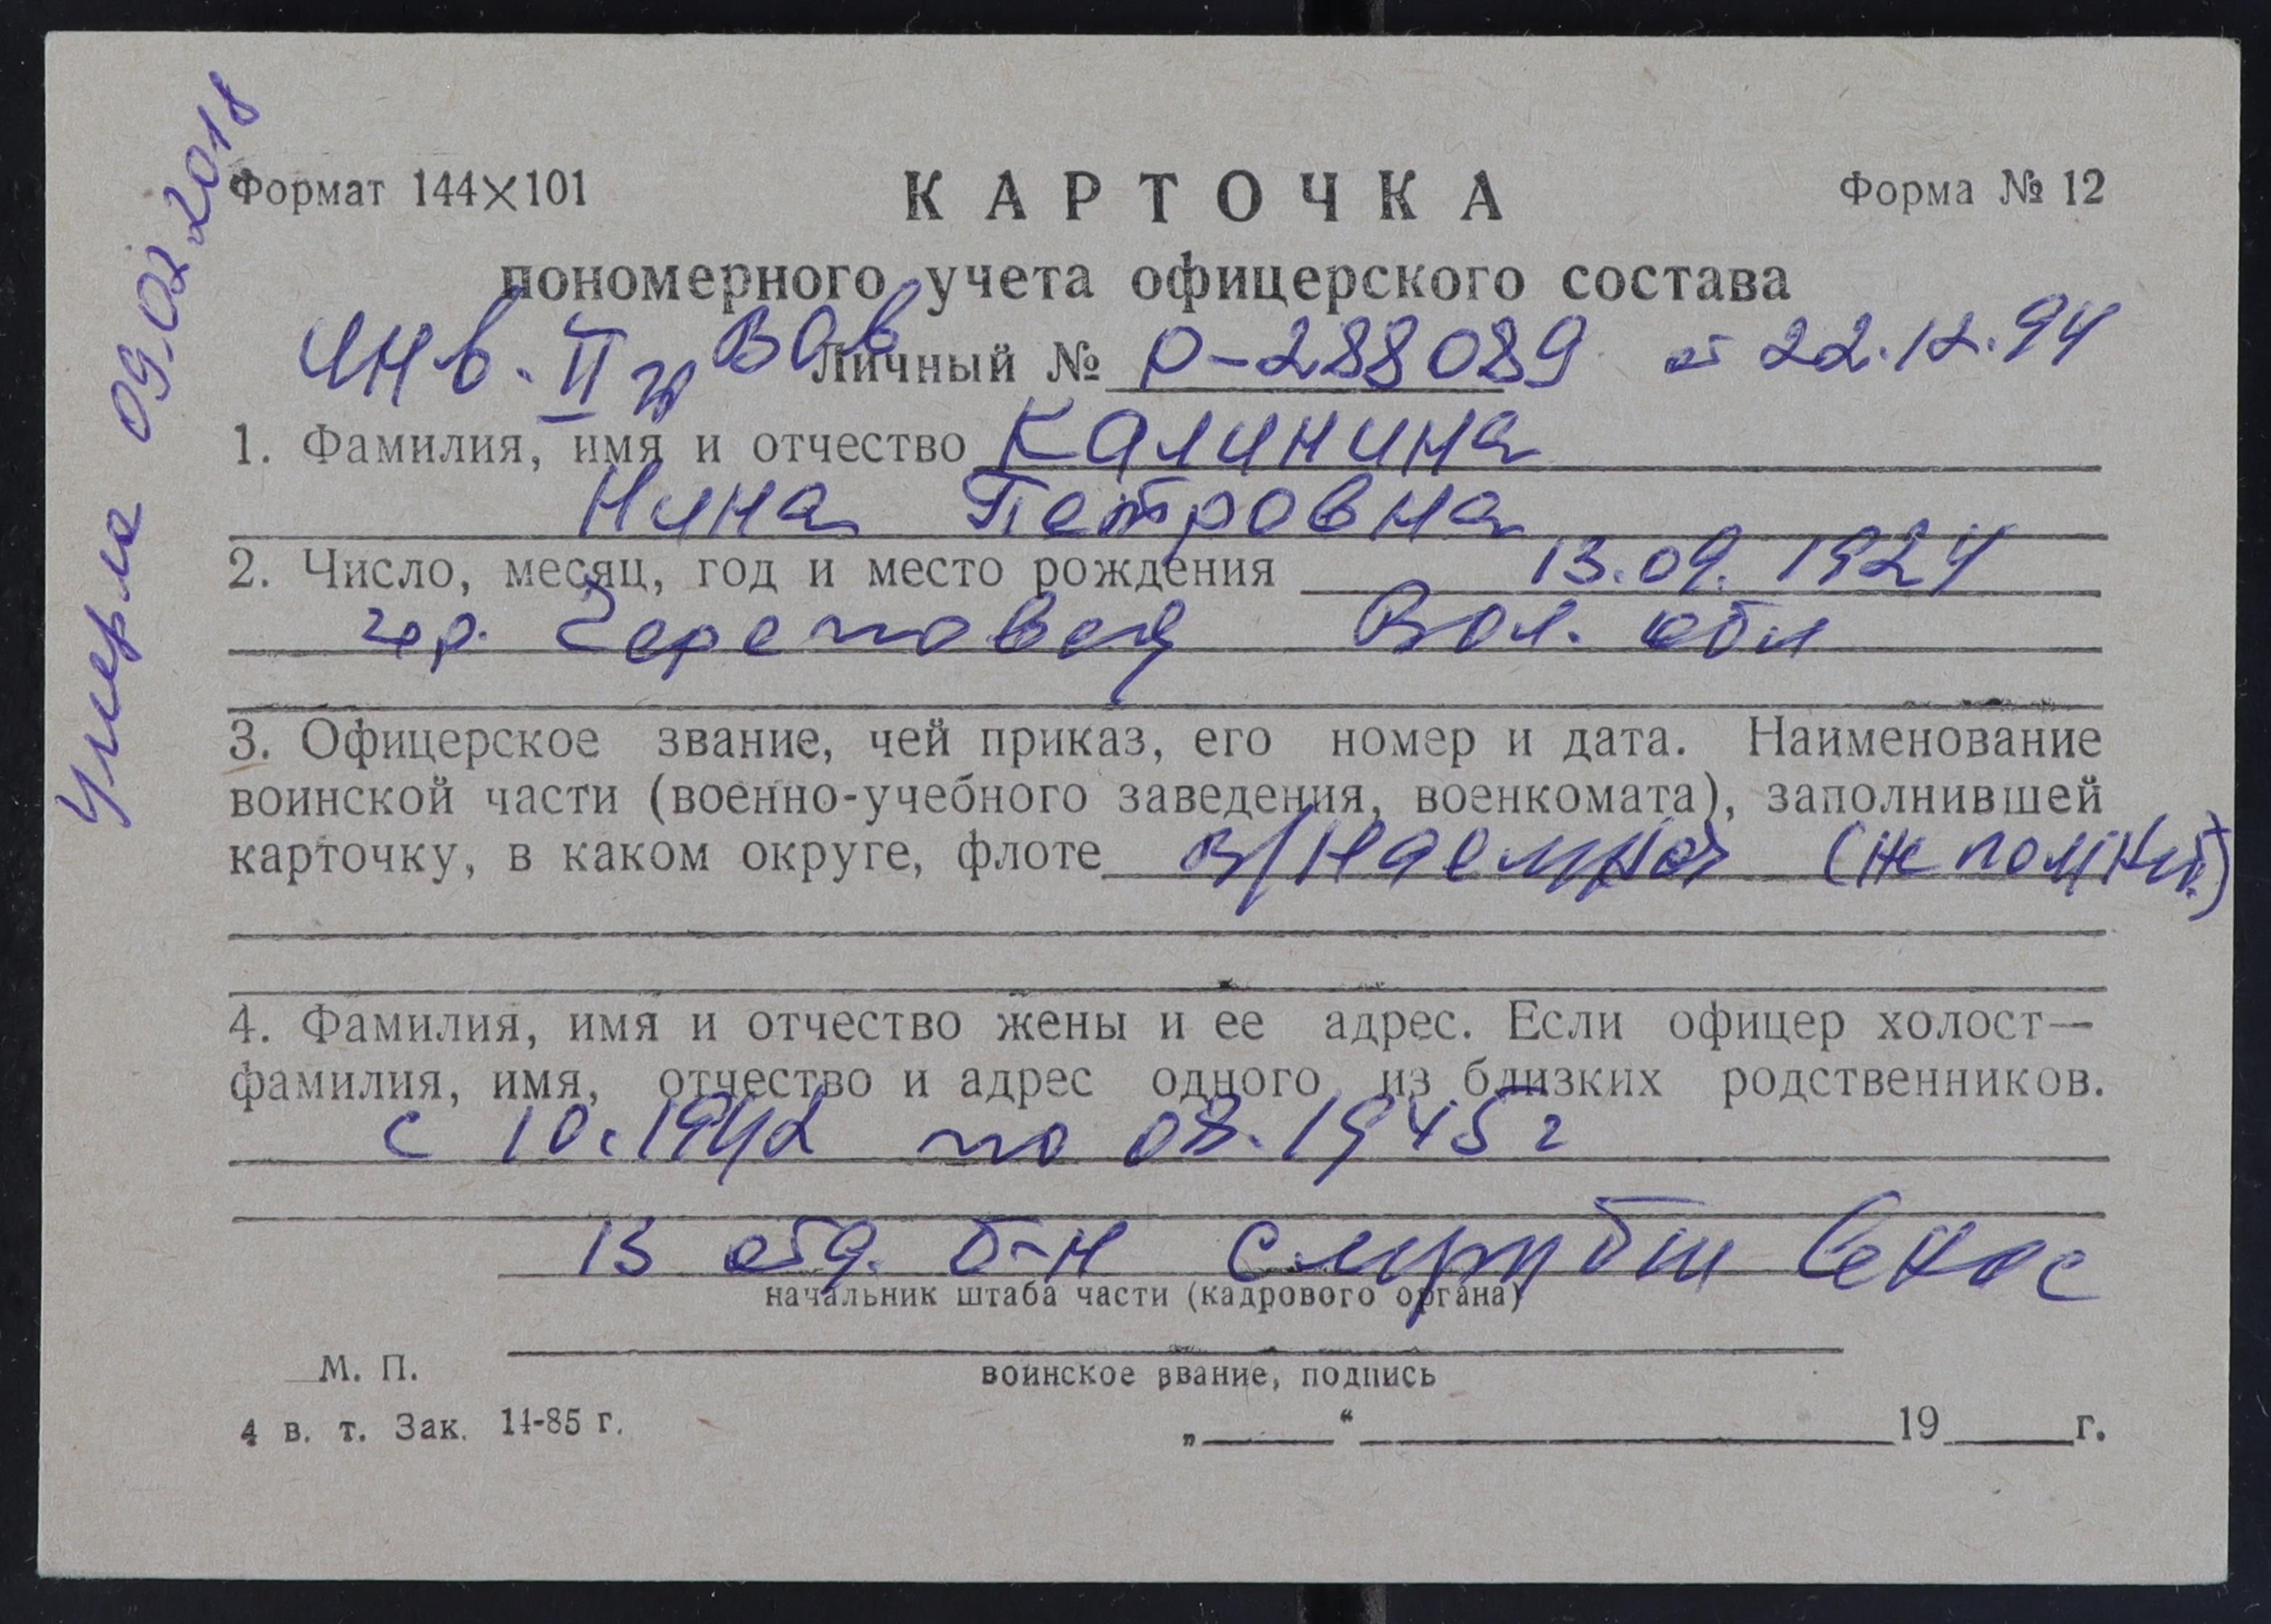 Умерла 09.02.2018
Формат 144×101
КАРТОЧКА
Форма № 12
пономерного учета офицерского состава
инв. II гр ВОВ
Личный № Р-288089 от 22.12.94
1. Фамилия, имя и отчество Калинина
Нина Петровна
2. Число, месяц, год и место рождения 13.09.1924
гор. Череповец Вол. обл
3. Офицерское звание, чей приказ, его номер и дата. Наименование
воинской части (военно-учебного заведения, военкомата), заполнившей
карточку, в каком округе, флоте в/наемная (не помнит)
4. Фамилия, имя и отчество жены и ее адрес. Если офицер холост—
фамилия, имя, отчество и адрес одного из близких родственников.
с 10.1942 по 08.1945 г
13 отд. б-н
начальник штаба части (кадрового органа)
М. П.
воинское звание, подпись
4 в. т. Зак. 14-85 г.
„ “ 19 г.